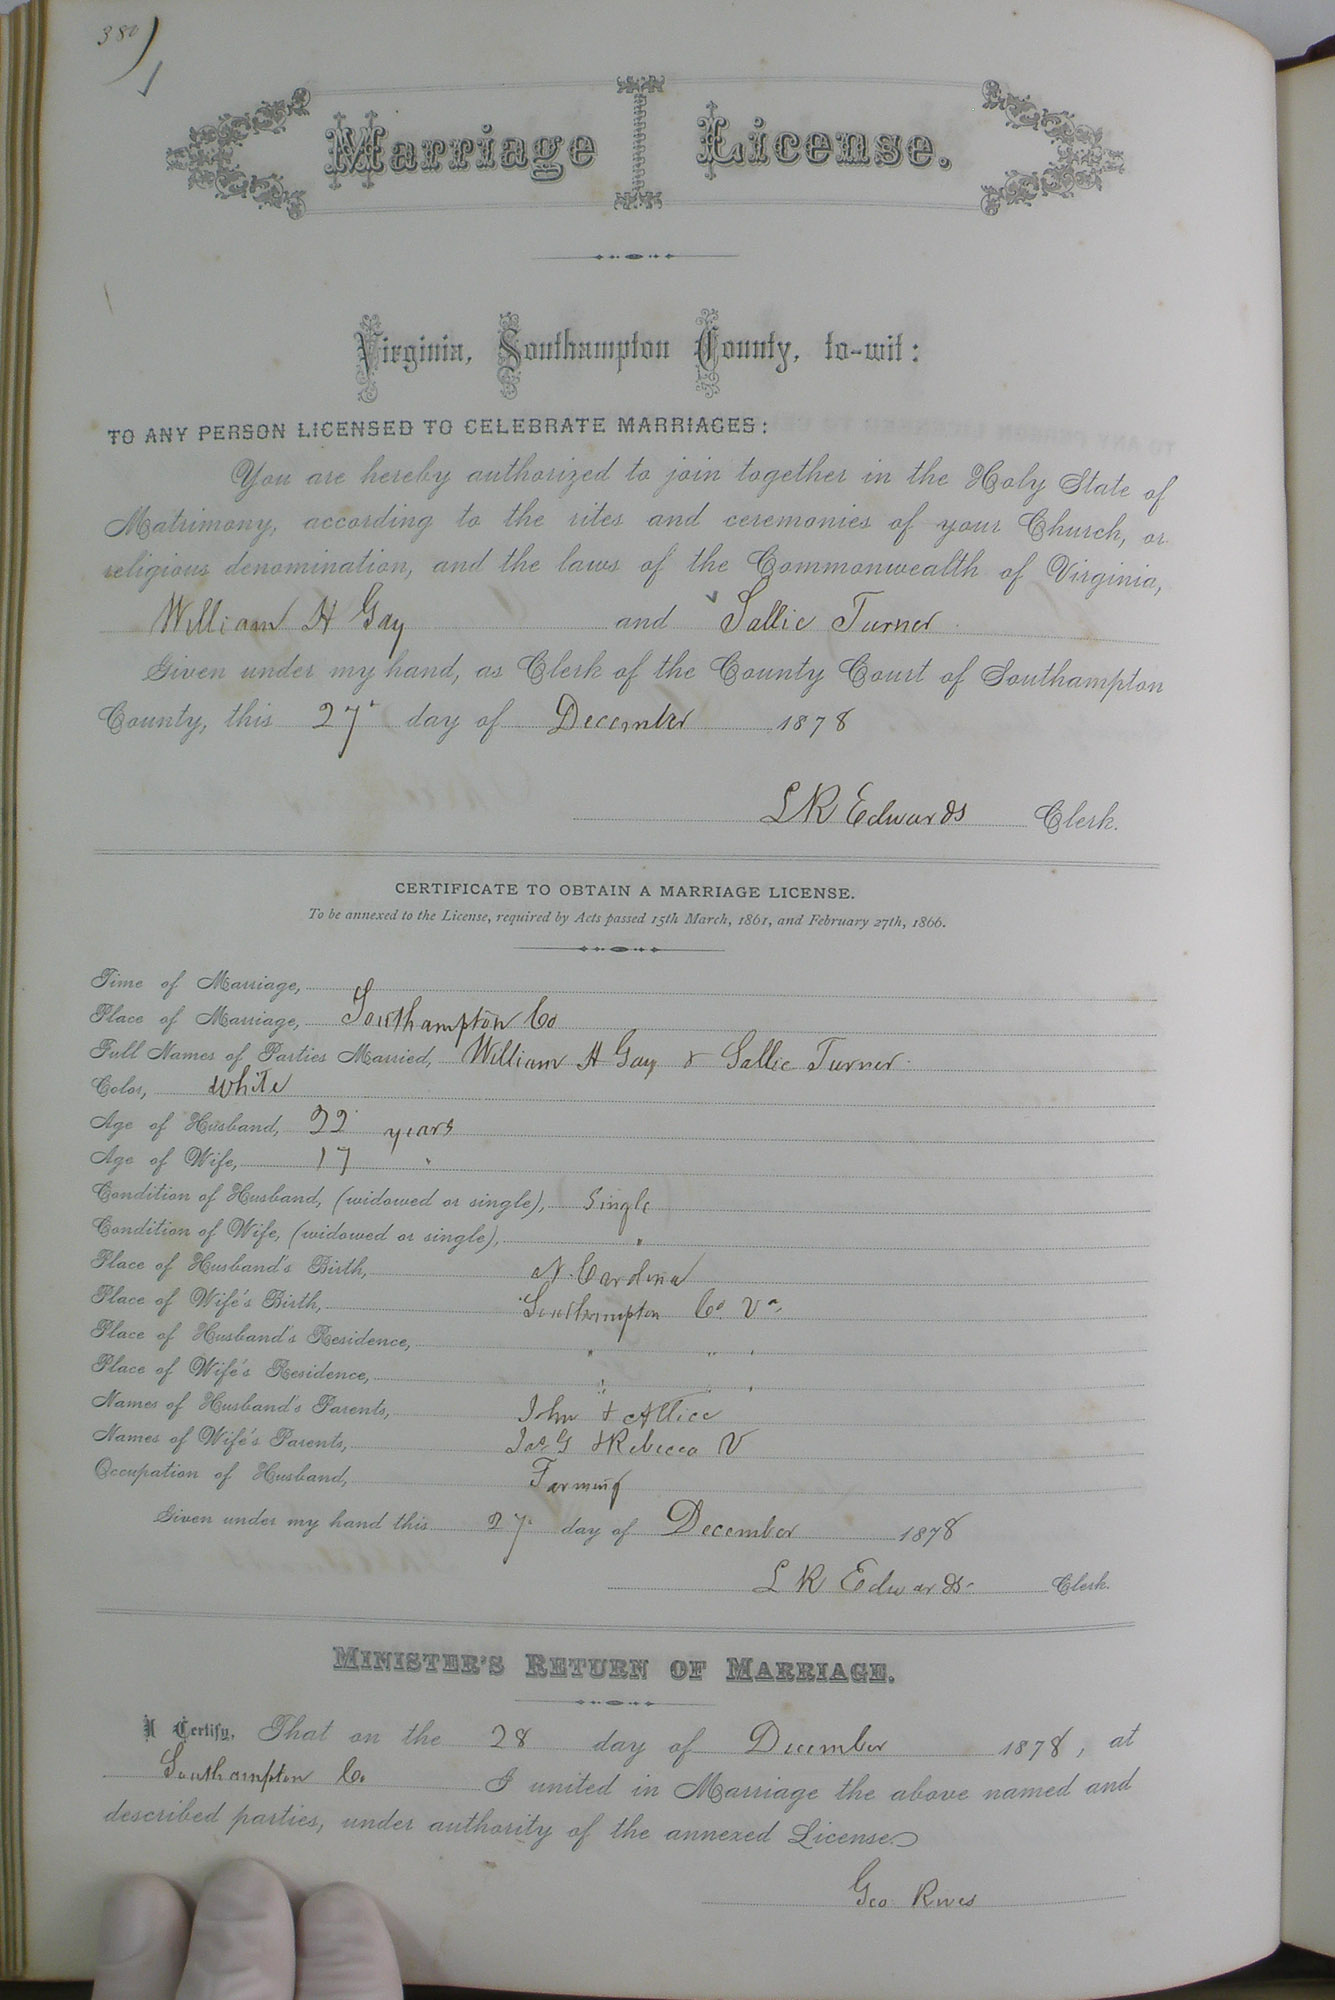 380
Marriage License.
Virginia, Southampton County, to-wit:
TO ANY PERSON LICENSED TO CELEBRATE MARRIAGES:
You are hereby authorized to join together in the Holy State of
Matrimony, according to the rites and ceremonies of your Church, or
religious denomination, and the laws of the Commonwealth of Virginia,
William H Gay and Sallie Turner
Given under my hand, as Clerk of the County Court of Southampton
County, this 27 day of December 1878
L R Edwards Clerk.
CERTIFICATE TO OBTAIN A MARRIAGE LICENSE.
To be annexed to the License, required by Acts passed 15th March, 1861, and February 27th, 1866.
Time of Marriage,
Place of Marriage, Southampton Co
Full Names of Parties Married, William H Gay & Sallie Turner.
Color, white
Age of Husband, 22 years
Age of Wife, 17 "
Condition of Husband, (widowed or single), Single
Condition of Wife, (widowed or single), "
Place of Husband's Birth, N. Carolina
Place of Wife's Birth, Southampton Co. Va.
Place of Husband's Residence, " " "
Place of Wife's Residence, " "
Names of Husband's Parents, John & Allice
Names of Wife's Parents, Jas G & Rebecca V
Occupation of Husband, Farming
Given under my hand this 27 day of December 1878
L R Edwards Clerk.
MINISTER'S RETURN OF MARRIAGE.
I Certify, That on the 28 day of December 1878, at
Southampton Co. I united in Marriage the above named and
described parties, under authority of the annexed License
Geo Rives